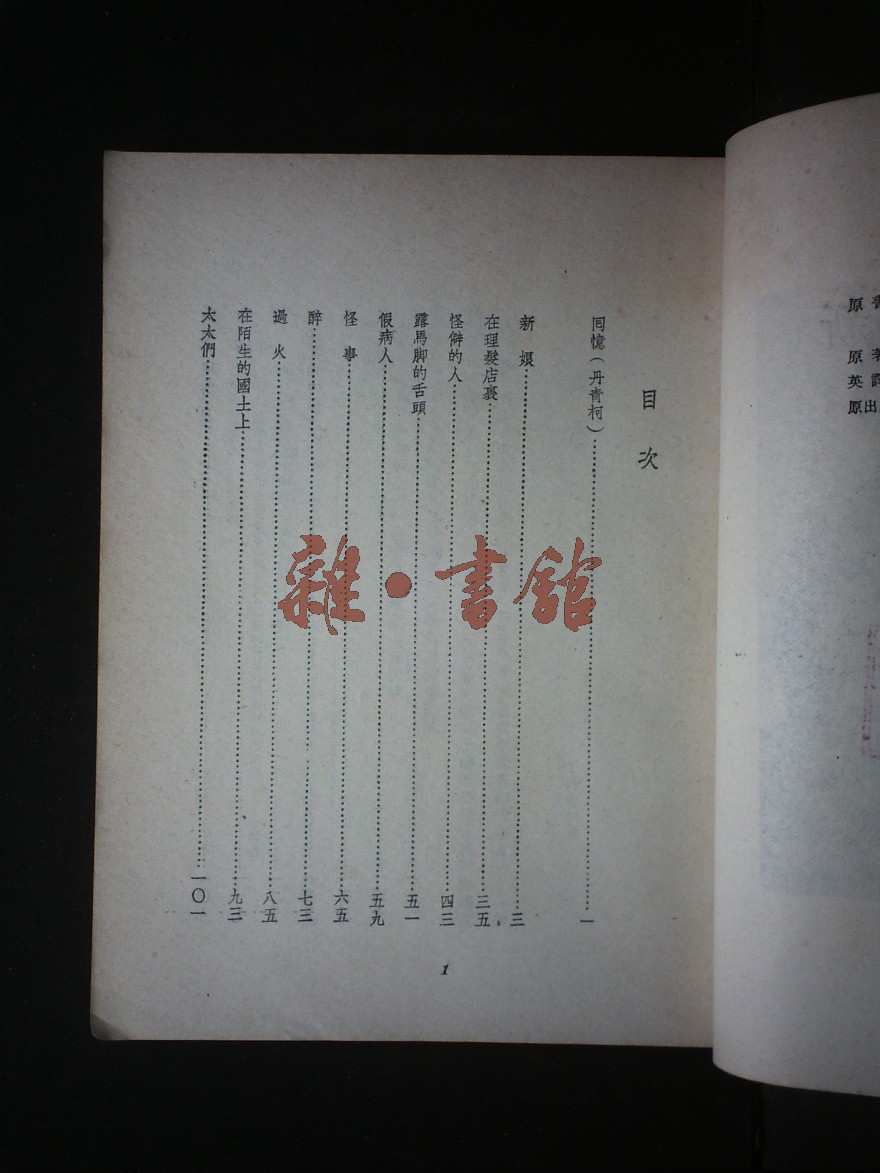 原書
原著
英譯
原出
目次
回憶(丹青柯)……一
新娘……三
在理髮店裏……三五
怪僻的人……四三
露馬脚的舌頭……五一
假病人……五九
怪事……六五
醉……七三
過火……八五
在陌生的國土上……九三
太太們……一〇一
1
雜·書館